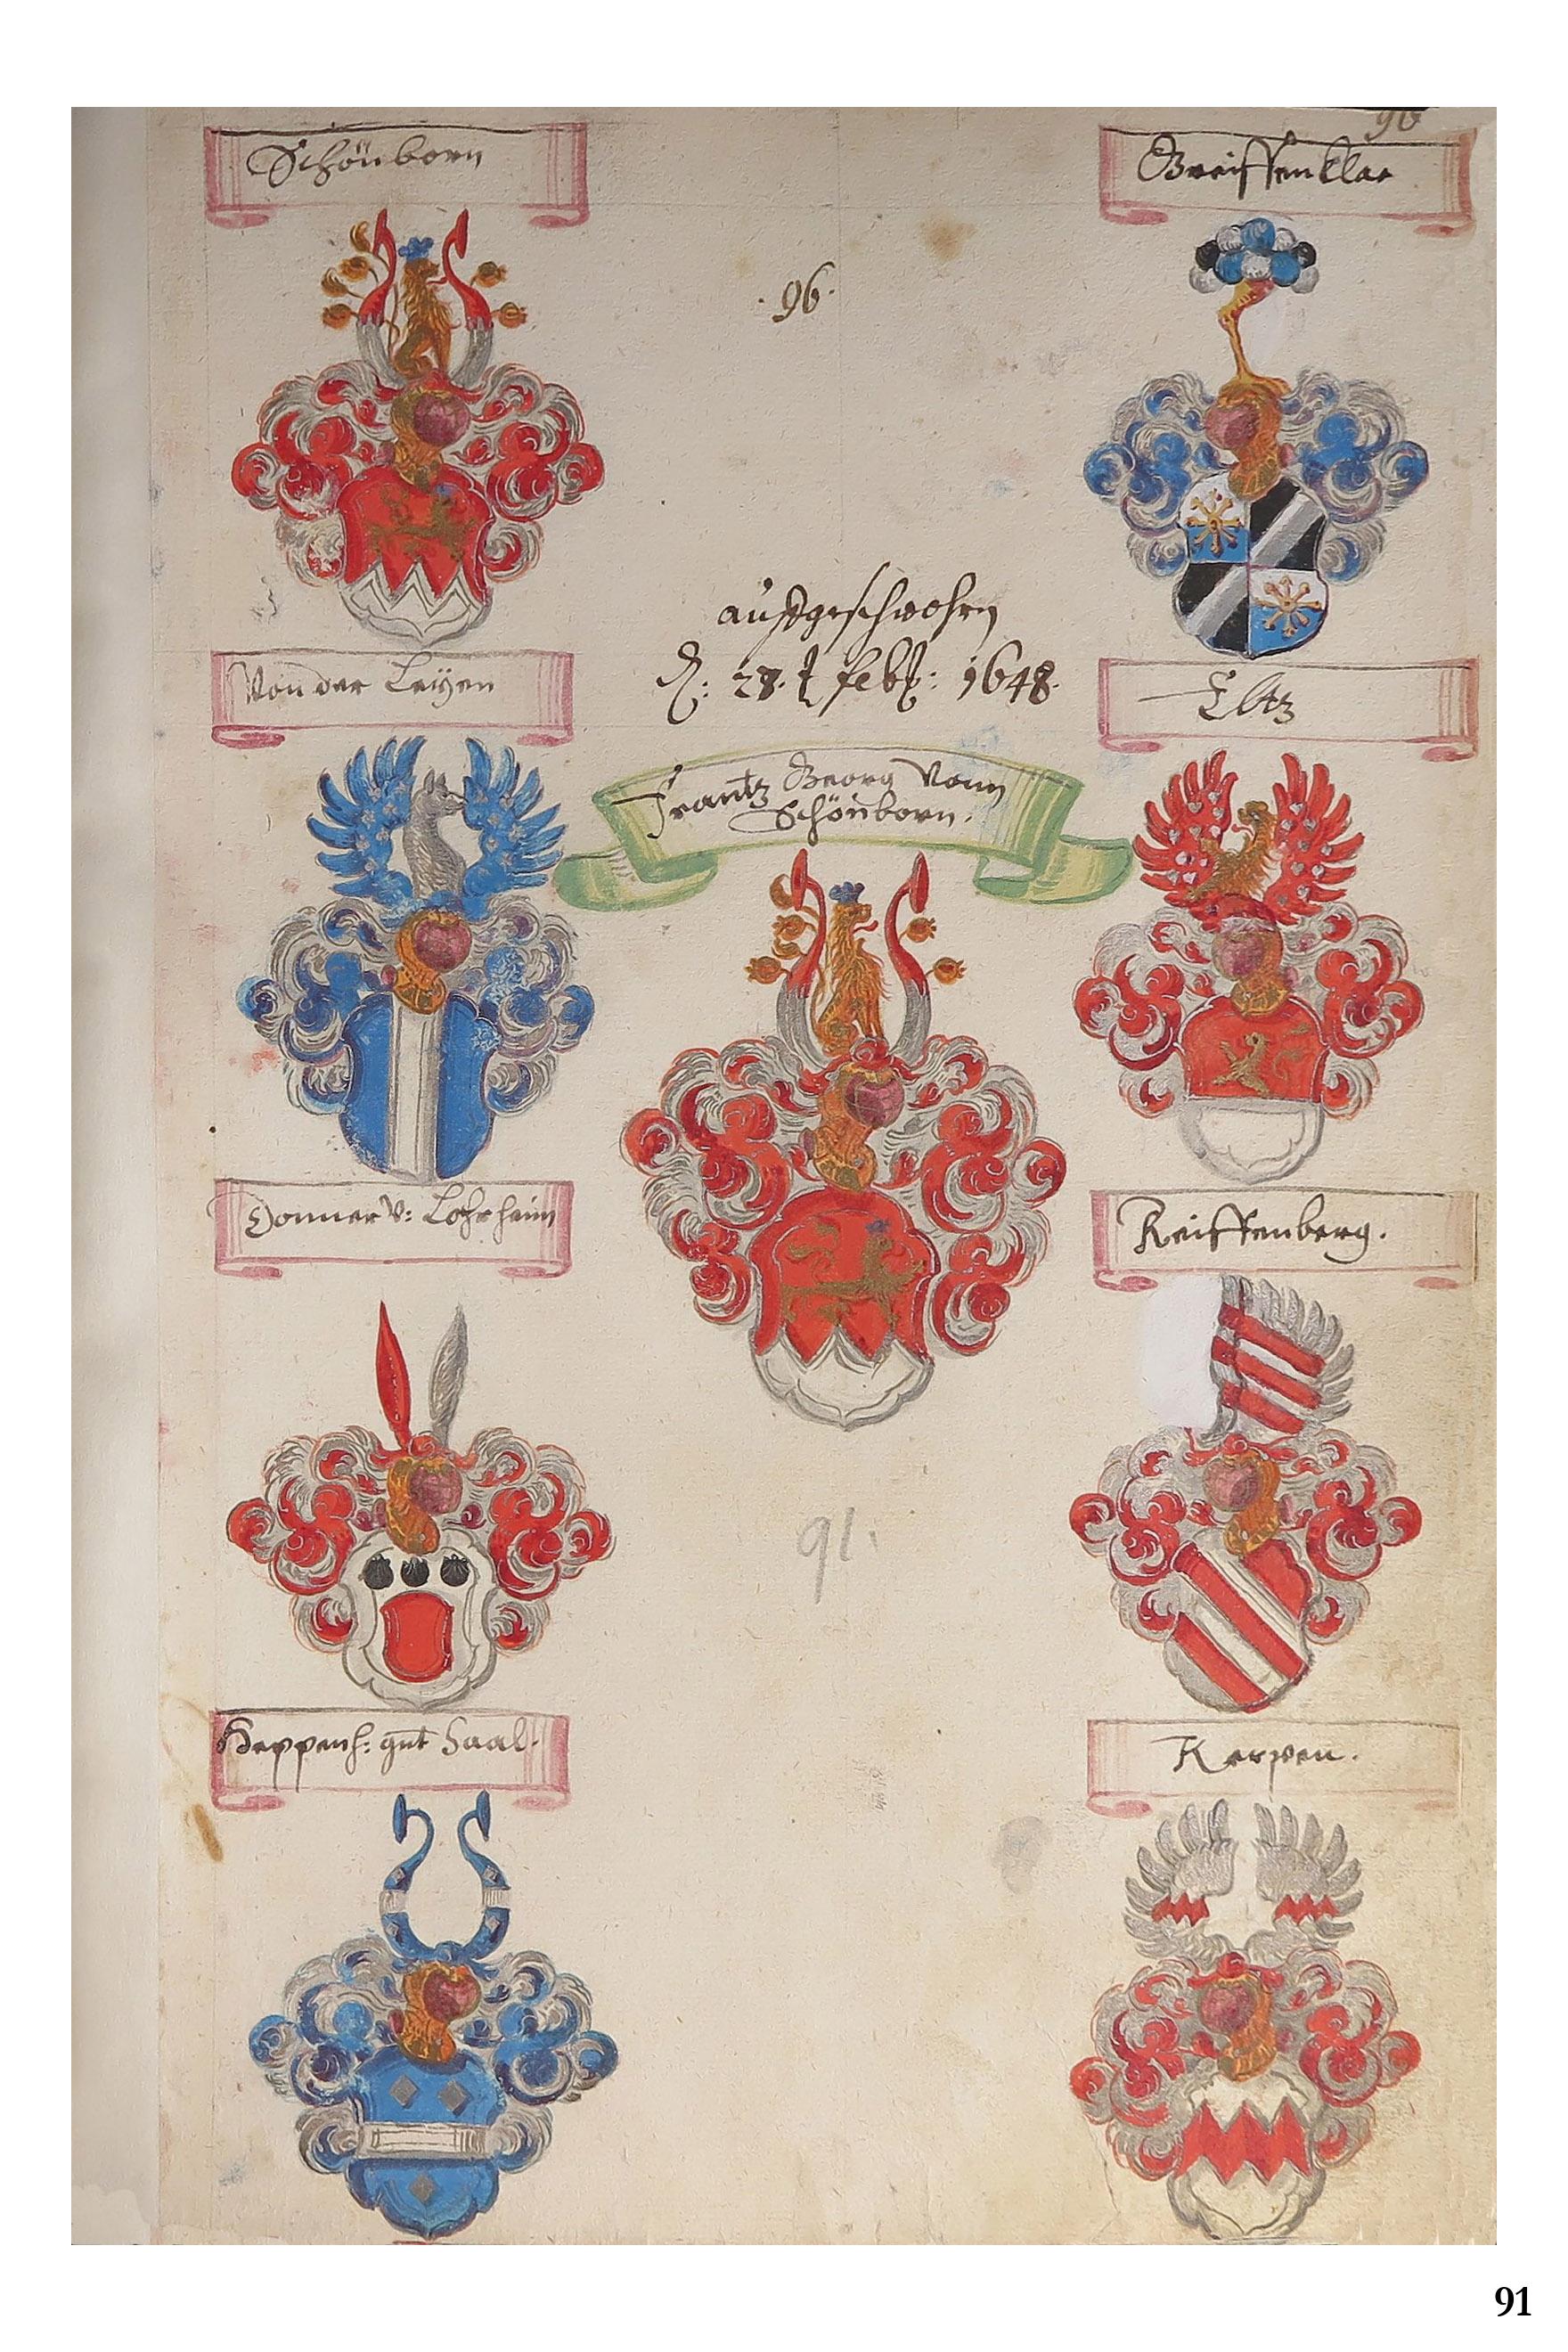 96
Schönborn
Greiffenklae
.96.
aussgeschwohrn
d: 28. t febr: 1648.
Von der Leÿen
Eltz
Frantz Georg Vonn
Schönborn.
Donner v: Lohrheim
Reiffenberg.
91.
Heppenh: gnt Saal.
Kerpen.
91